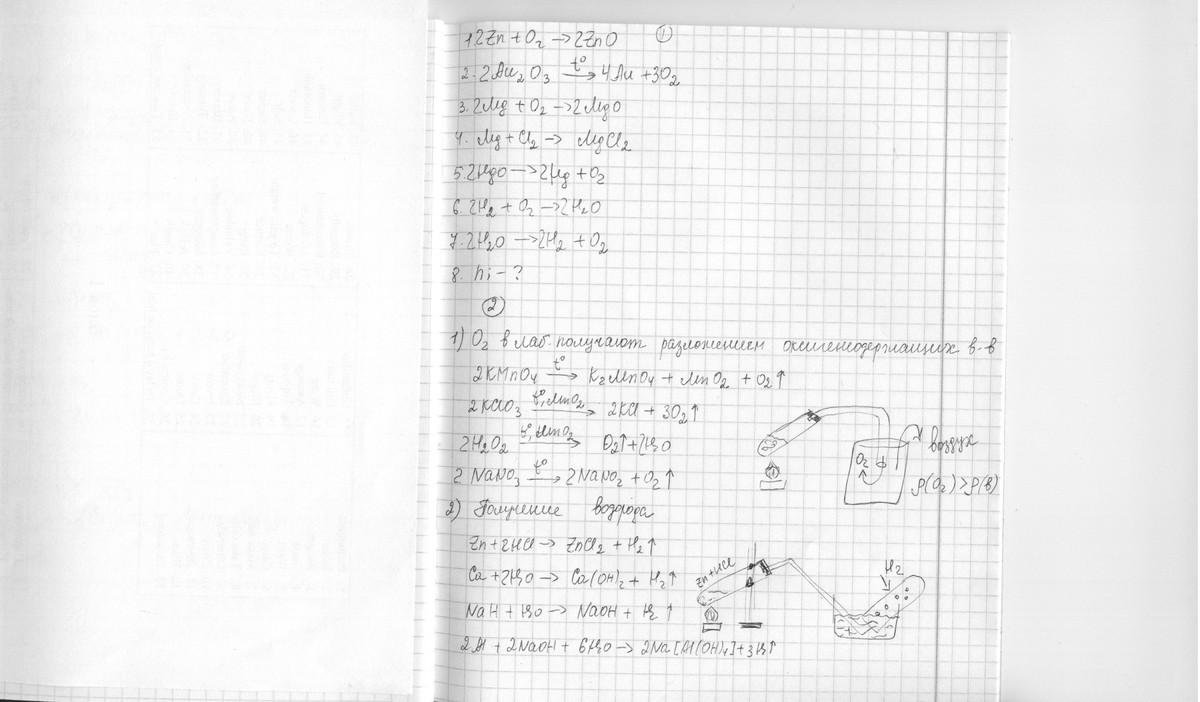 ①
1. 2Zn + O₂ → 2ZnO
2. 2Au₂O₃ t° → 4Au + 3O₂
3. 2Mg + O₂ → 2MgO
4. Mg + Cl₂ → MgCl₂
5. 2HgO → 2Hg + O₂
6. 2H₂ + O₂ → 2H₂O
7. 2H₂O → 2H₂ + O₂
8. hi - ?
②
1) O₂ в лаб. получают разложением оксигенсодержащих в-в
2KMnO₄ t° → K₂MnO₄ + MnO₂ + O₂↑
2KClO₃ t°, MnO₂ → 2KCl + 3O₂↑
2H₂O₂ t°, MnO₂ → O₂↑ + 2H₂O
2NaNO₃ t° → 2NaNO₂ + O₂↑
O₂
воздух
ρ(O₂) > ρ(в)
2) Получение водорода
Zn + 2HCl → ZnCl₂ + H₂↑
Ca + 2H₂O → Ca(OH)₂ + H₂↑
NaH + H₂O → NaOH + H₂↑
2Al + 2NaOH + 6H₂O → 2Na[Al(OH)₄] + 3H₂↑
Zn + HCl
H₂